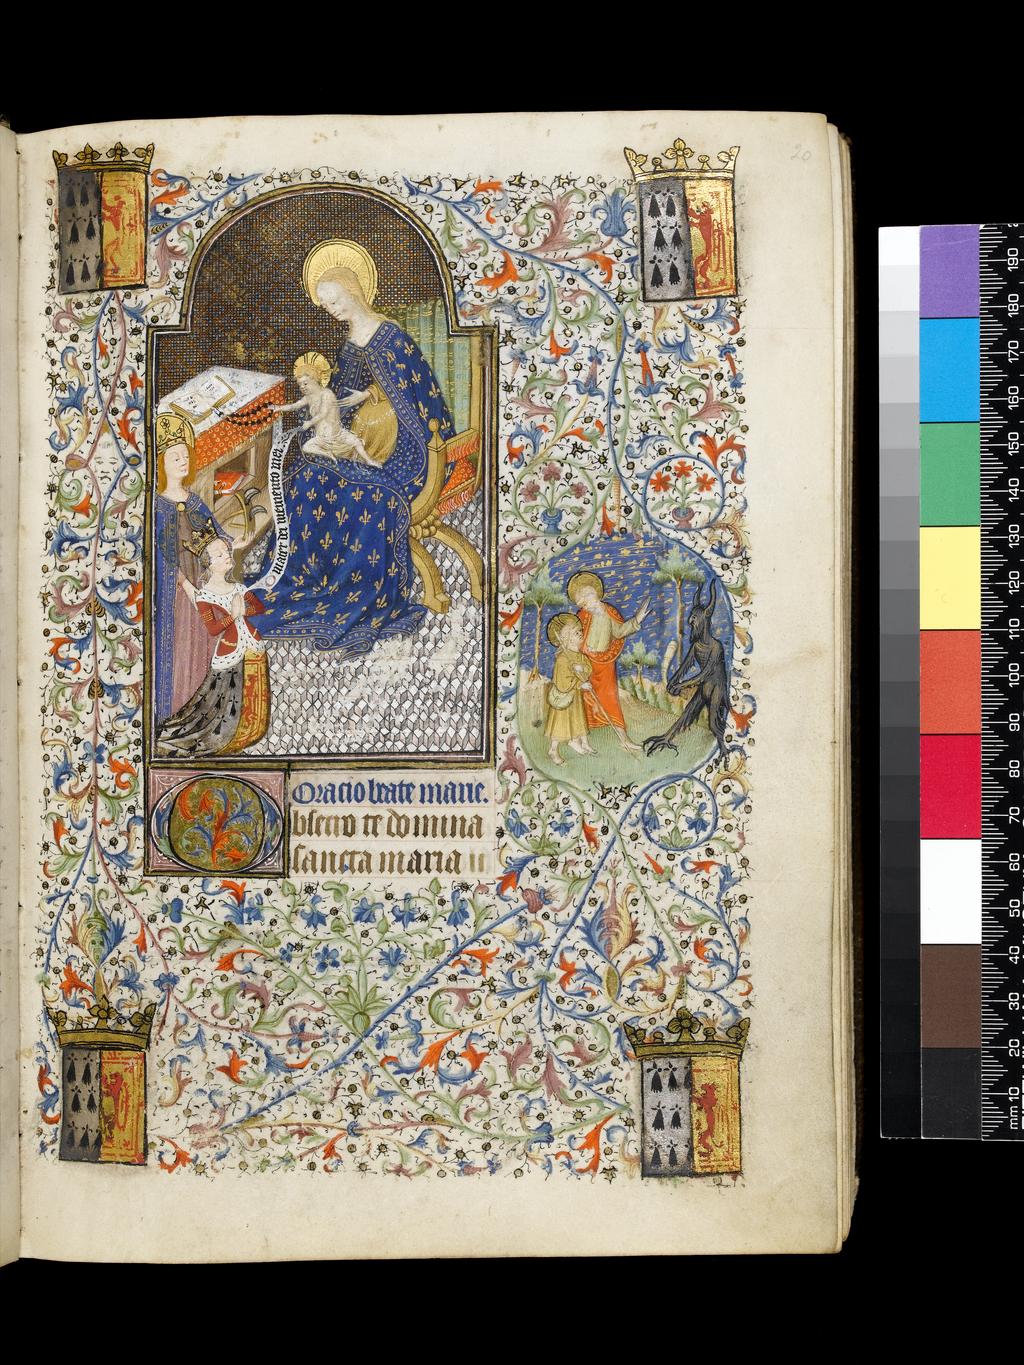 20
O mater dei memento mei
Oracio beate marie.
Obsecro te domina
sancta maria
mm 10 20 30 40 50 60 70 80 90 100 110 120 130 140 150 160 170 180 190